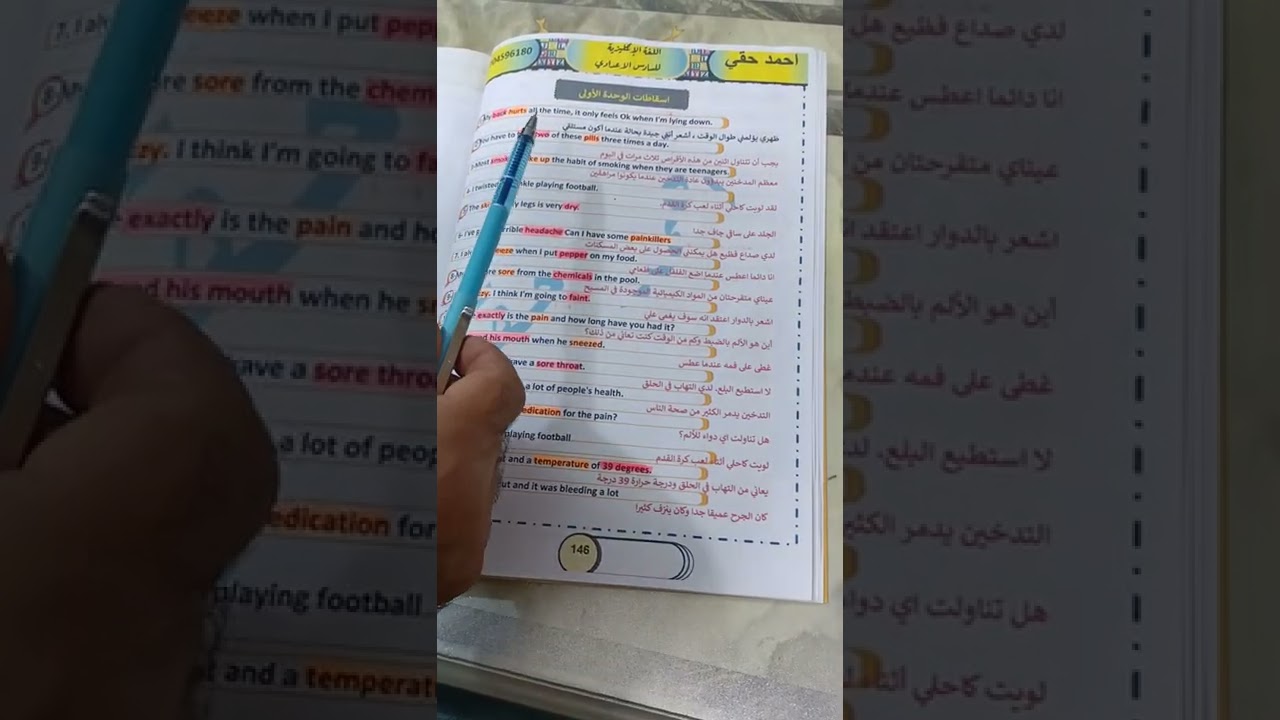 04596180
اللغة الإنكليزية
للسادس الاعدادي
احمد حقي
اسقاطات الوحدة الأولى
back hurts all the time, it only feels Ok when I'm lying down.
ظهري يؤلمني طوال الوقت ، أشعر أنني جيدة بحالة عندما أكون مستلقي
You have to two of these pills three times a day.
يجب أن تتناول اثنين من هذه الأقراص ثلاث مرات في اليوم
Most up the habit of smoking when they are teenagers.
معظم المدخنين يبدؤون عادة التدخين عندما يكونوا مراهقين
I twisted playing football.
لقد لويت كاحلي أثناء لعب كرة القدم
The legs is very dry.
الجلد على ساقي جاف جدا
headache Can I have some painkillers
لدي صداع فظيع هل يمكنني الحصول على بعض المسكنات
7. I when I put pepper on my food.
انا دائما اعطس عندما اضع الفلفل على طعامي
sore from the chemicals in the pool.
عيناي متقرحتان من المواد الكيميائية الموجودة في المسبح
I think I'm going to faint.
اشعر بالدوار اعتقد انه سوف يغمى علي
exactly is the pain and how long have you had it?
أين هو الألم بالضبط وكم من الوقت كنت تعاني من ذلك؟
his mouth when he sneezed.
غطى على فمه عندما عطس
have a sore throat.
لا استطيع البلع. لدي التهاب في الحلق
a lot of people's health.
التدخين يدمر الكثير من صحة الناس
medication for the pain?
هل تناولت اي دواء للألم؟
playing football
لويت كاحلي أثناء لعب كرة القدم
and a temperature of 39 degrees.
يعاني من التهاب في الحلق ودرجة حرارة 39 درجة
cut and it was bleeding a lot
كان الجرح عميقا جدا وكان ينزف كثيرا
146